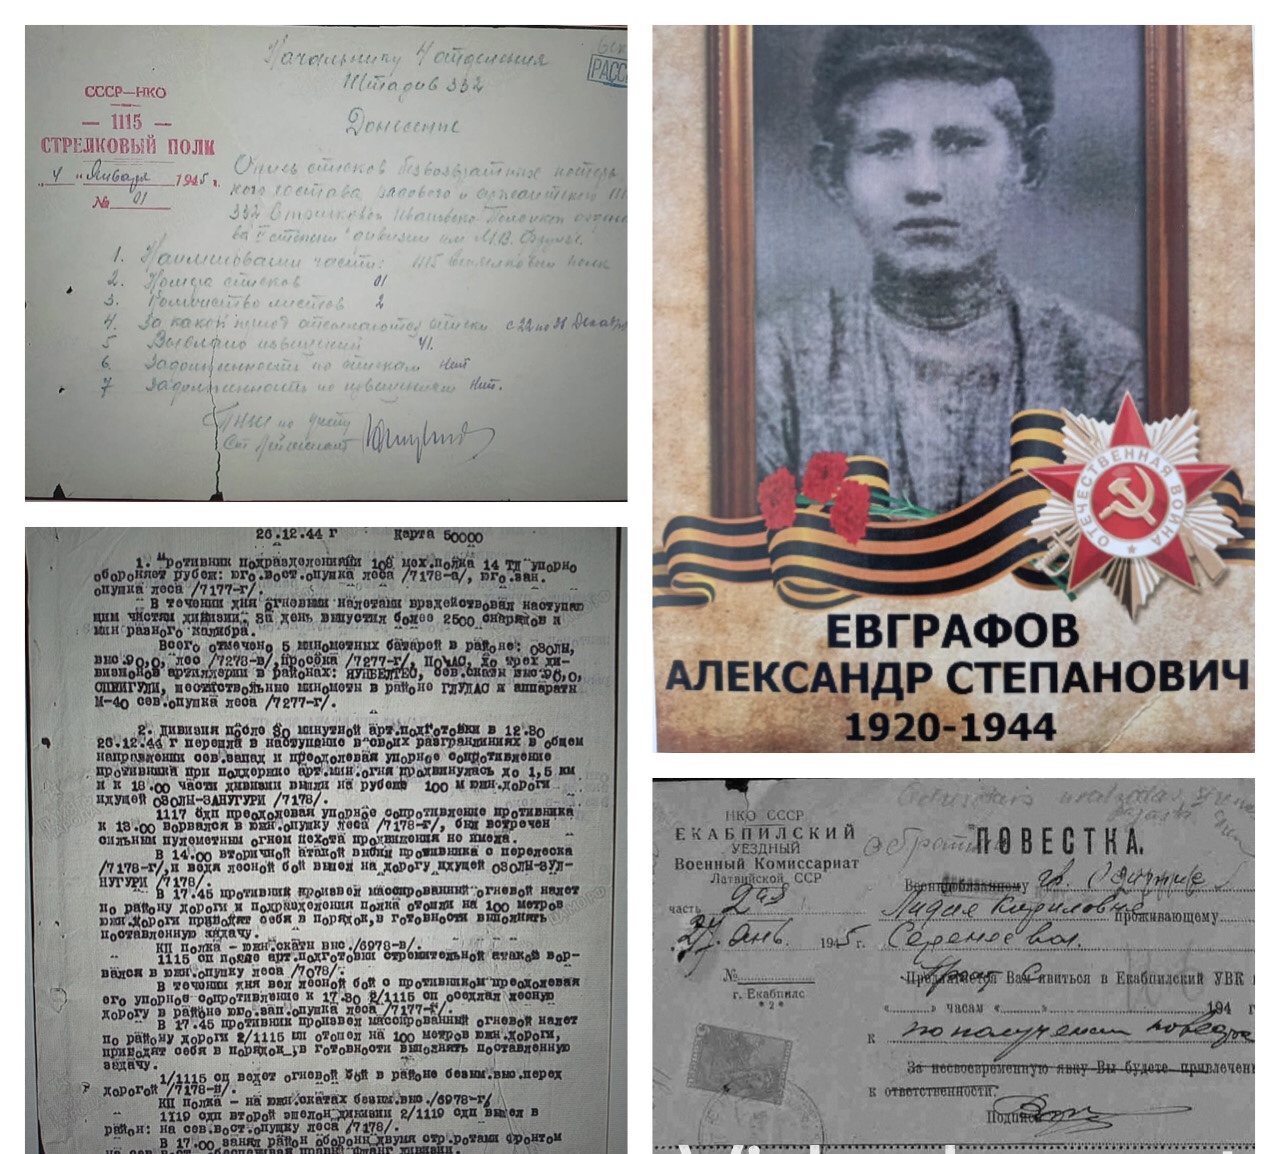 Начальнику 4 отделения
Штадив 332
РАСС
СССР—НКО
— 1115 —
СТРЕЛКОВЫЙ ПОЛК
„4 " Января 1945 г.
№ 01
Донесение
Опись списков безвозвратных потерь
332 Стрелковой Иваново Полоцкой
дивизии им М.В. Фрунзе.
1. Наименование части: 1115 стрелковый полк
2. Номера списков 01
3. Количество листов 2
4. За какой период списки с 22 по 31 Декабря
5 Выслано извещений 41.
6. Задолженность по спискам Нет
7 Задолженность по извещениям Нет.
ПНШ по учету
Ст Лейтенант
ЕВГРАФОВ
АЛЕКСАНДР СТЕПАНОВИЧ
1920-1944
ОТЕЧЕСТВЕННАЯ ВОЙНА
26.12.44 г Карта 50000
1. Противник подразделениями 108 мех.полка 14 ТД упорно
обороняет рубеж: юго.вост.опушка леса /7178-а/, юго.зап.
опушка леса /7177-г/.
В течении дня огневыми налетами врадействовал наступаю
щим частям дивизии. За день выпустил более 2500 снарядов и
мин разного калибра.
Всего отмечено 5 минометных батарей в районе: ОЗОЛИ,
выс.90,0, лес /7278-в/,просека /7277-г/, до трех ди-
визионов артиллерии в районах: ЯУНБЕЛТЕС, сев.скаты выс.90,0,
СПИНГУЛИ, шестиствольные минометы в районе ГЛУДАС и аппараты
М-40 сев.опушка леса /7277-г/.
2. Дивизия после 30 минутной арт.подготовки в 12.30
26.12.44 г перешла в наступление в своих разгранлиниях в общем
направлении сев.запад и преодолевая упорное сопротивление
противника при поддержке арт.мин.огня продвинулась до 1,5 км
и к 18.00 части дивизии вышли на рубеж 100 м южн.дороги
идущей ОЗОЛЫ-ЗАНУГУРИ /7178/.
1117 сдп преодолевая упорное сопротивление противника
к 13.00 ворвался в южн.опушку леса /7178-г/, был встречен
сильным пулеметным огнем пехота продвижения не имела.
В 14.00 вторичной атакой выбил противника с перелеска
/7178-г/,и ведя лесной бой вышел на дорогу идущей ОЗОЛЫ-ЗУЛ-
НУГУРИ /7178/.
В 17.45 противник произвел массированный огневой налет
по району дороги и подразделения полка отошли на 100 метров
южн.дороги приводят себя в порядок,в готовности выполнять
поставленную задачу.
КП полка - южн.скаты выс./6978-в/.
1115 сп после арт.подготовки стремительной атакой вор-
вался в южн.опушку леса /7078/.
В течении дня вел лесной бой с противником преодолевая
его упорное сопротивление к 17.30 2/1115 сп оседлал лесную
дорогу в районе юго.зап.опушка леса /7177-г/.
В 17.45 противник произвел массированный огневой налет
по району дороги 2/1115 сп отошел на 100 метров южн.дороги,
приводят себя в порядок,в готовности выполнять поставленную
задачу.
1/1115 сп ведет огневой бой в районе безым.выс.перед
дорогой /7178-в/.
КП полка - на южн.скатах безым.выс./6978-г/
1119 сдп второй эшелон дивизии 2/1119 сдп вышел в
район: на сев.вост.опушку леса /7178/.
В 17.00 занял район обороны двумя стр.ротами фронтом
на сев.вост. обеспечивая правый фланг дивизии.
НКО СССР
ЕКАБПИЛСКИЙ
УЕЗДНЫЙ
Военный Комиссариат
Латвийской ССР
часть 2аз
27. янь. 1945 г.
№
г. Екабпилс
* 2 *
Обратн
ПОВЕСТКА.
Военнообязанному гр.
Лидия Кириловне проживающему
Предлагается Вам явиться в Екабпилский УВК
«......» часам «......» 194 г
к по получении повестки
За несвоевременную явку Вы будете привлечен
к ответственности.
Подпись